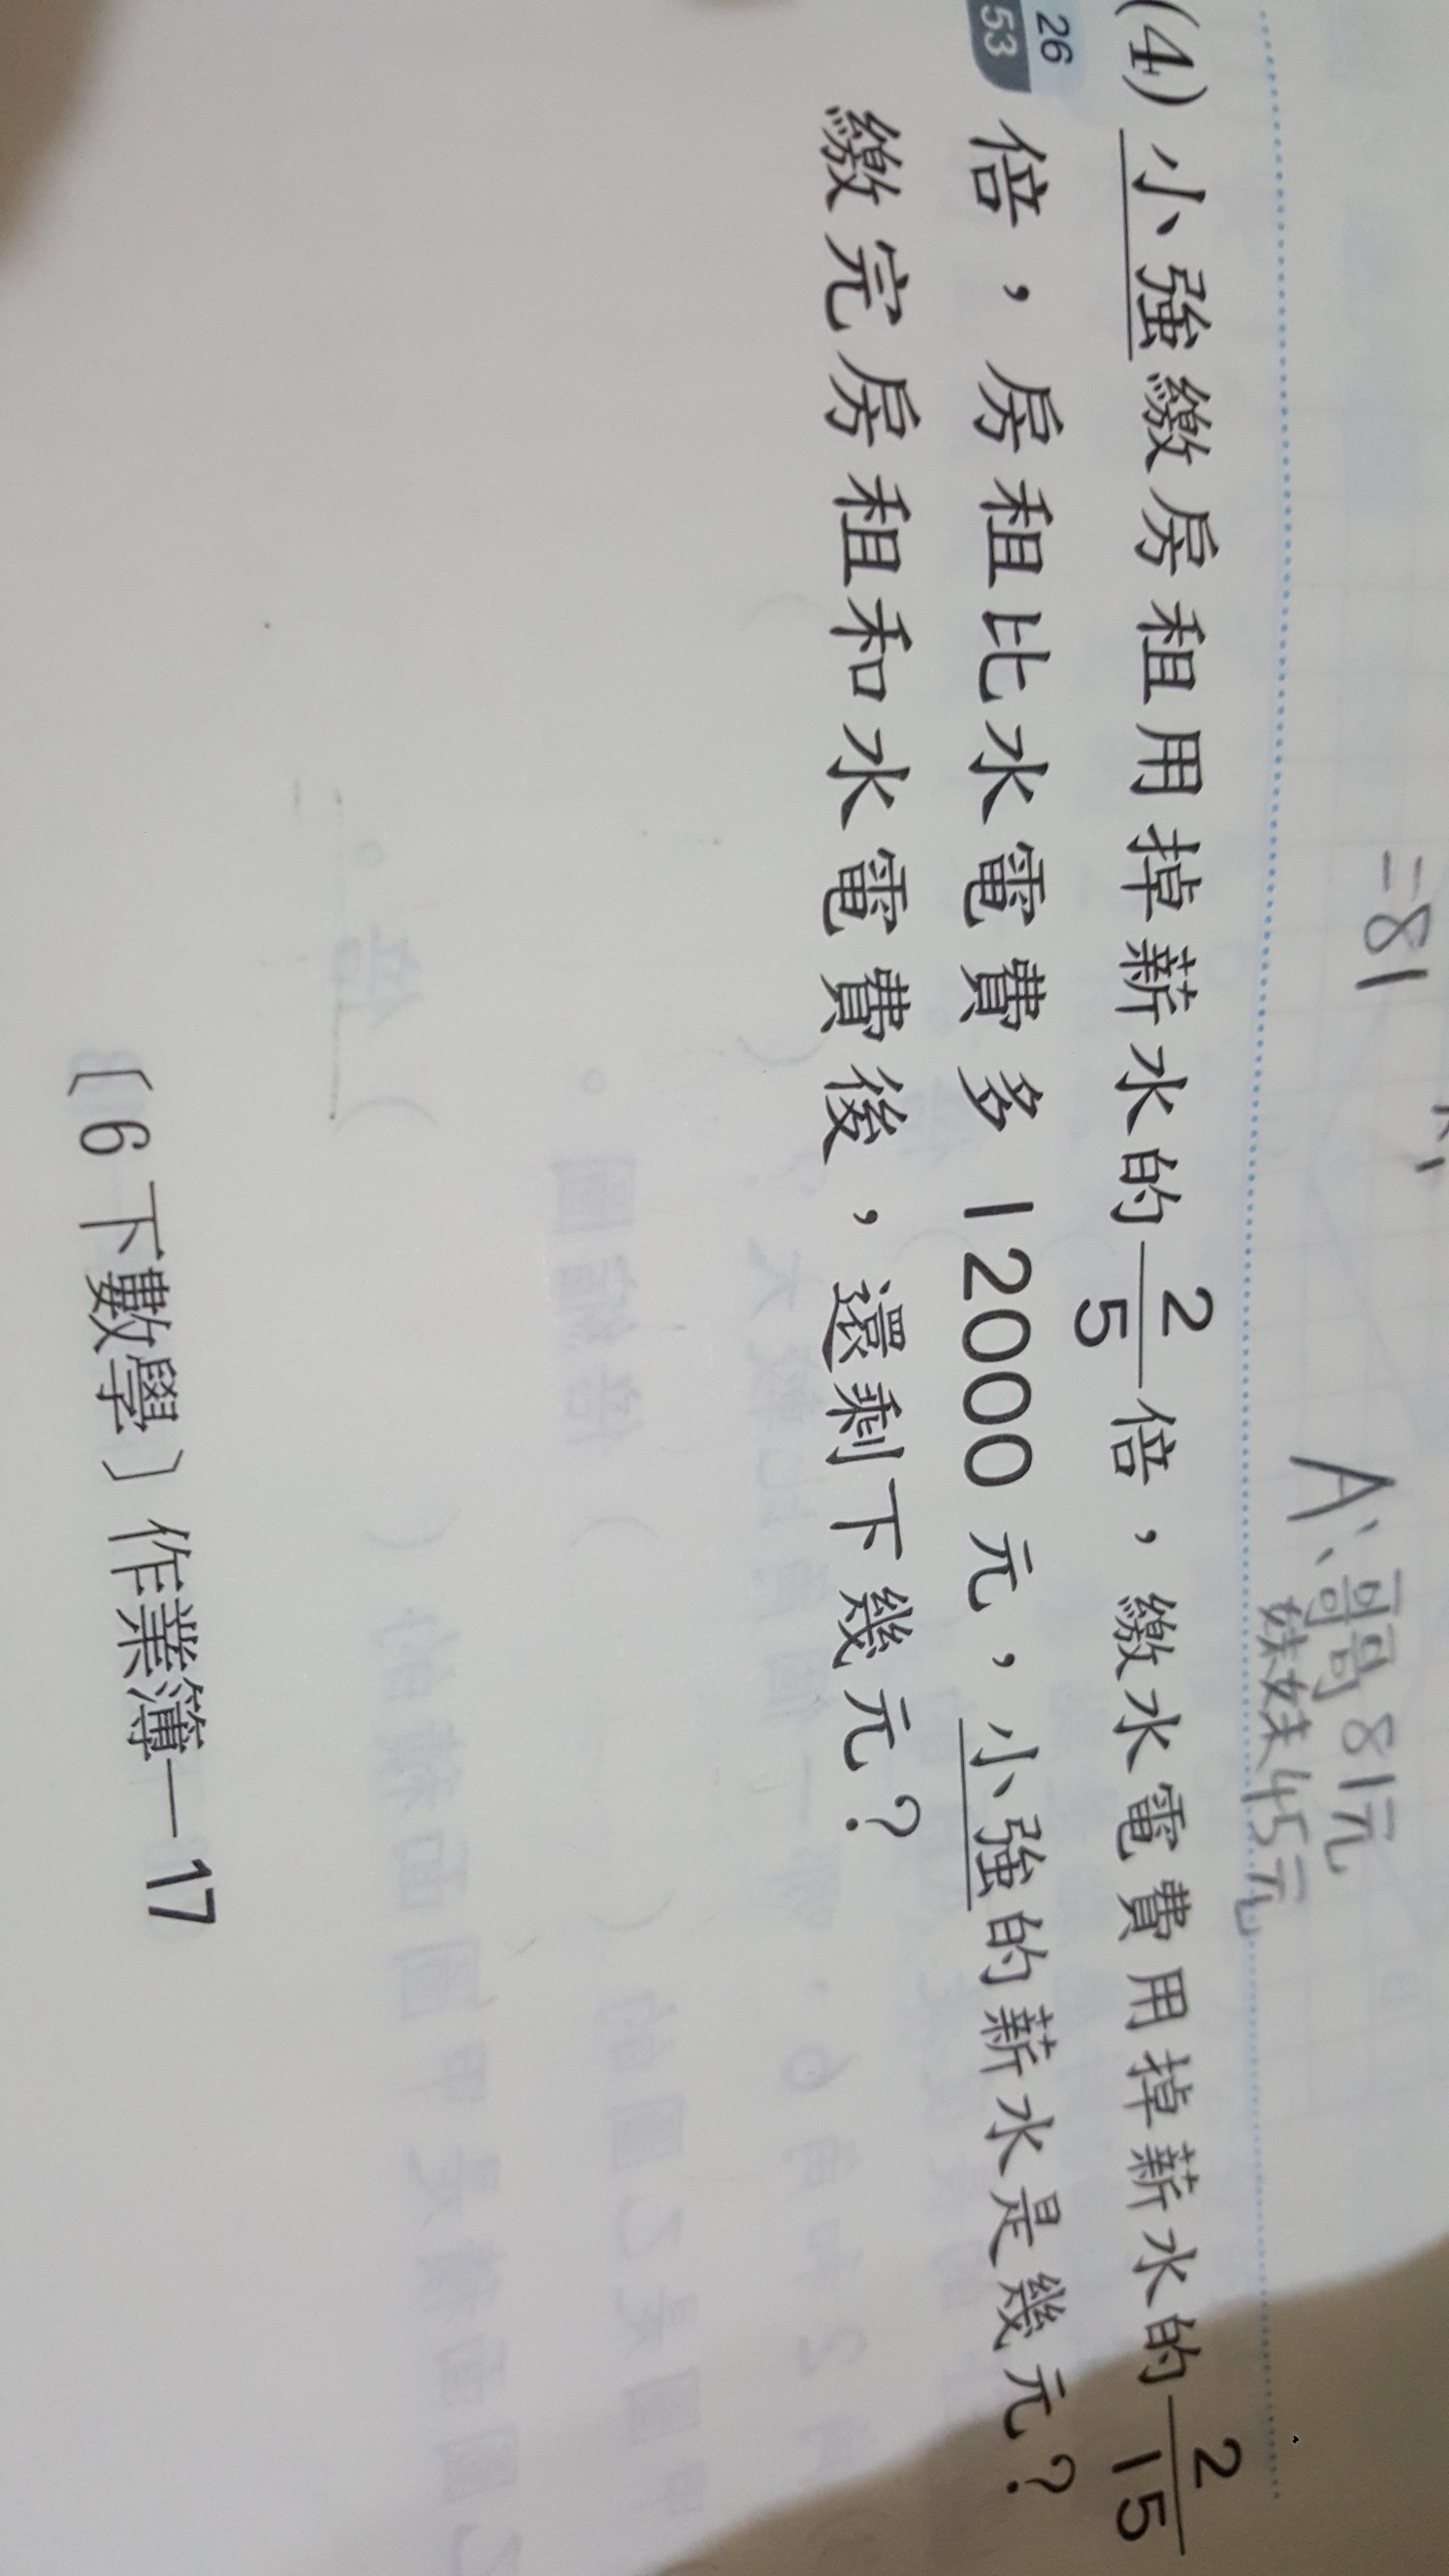 =81
A、哥哥81元
妹妹45元
(4) 小強繳房租用掉薪水的2/5倍，繳水電費用掉薪水的2/15
26
53
倍，房租比水電費多12000元，小強的薪水是幾元？
繳完房租和水電費後，還剩下幾元？
〔6下數學〕作業簿—17